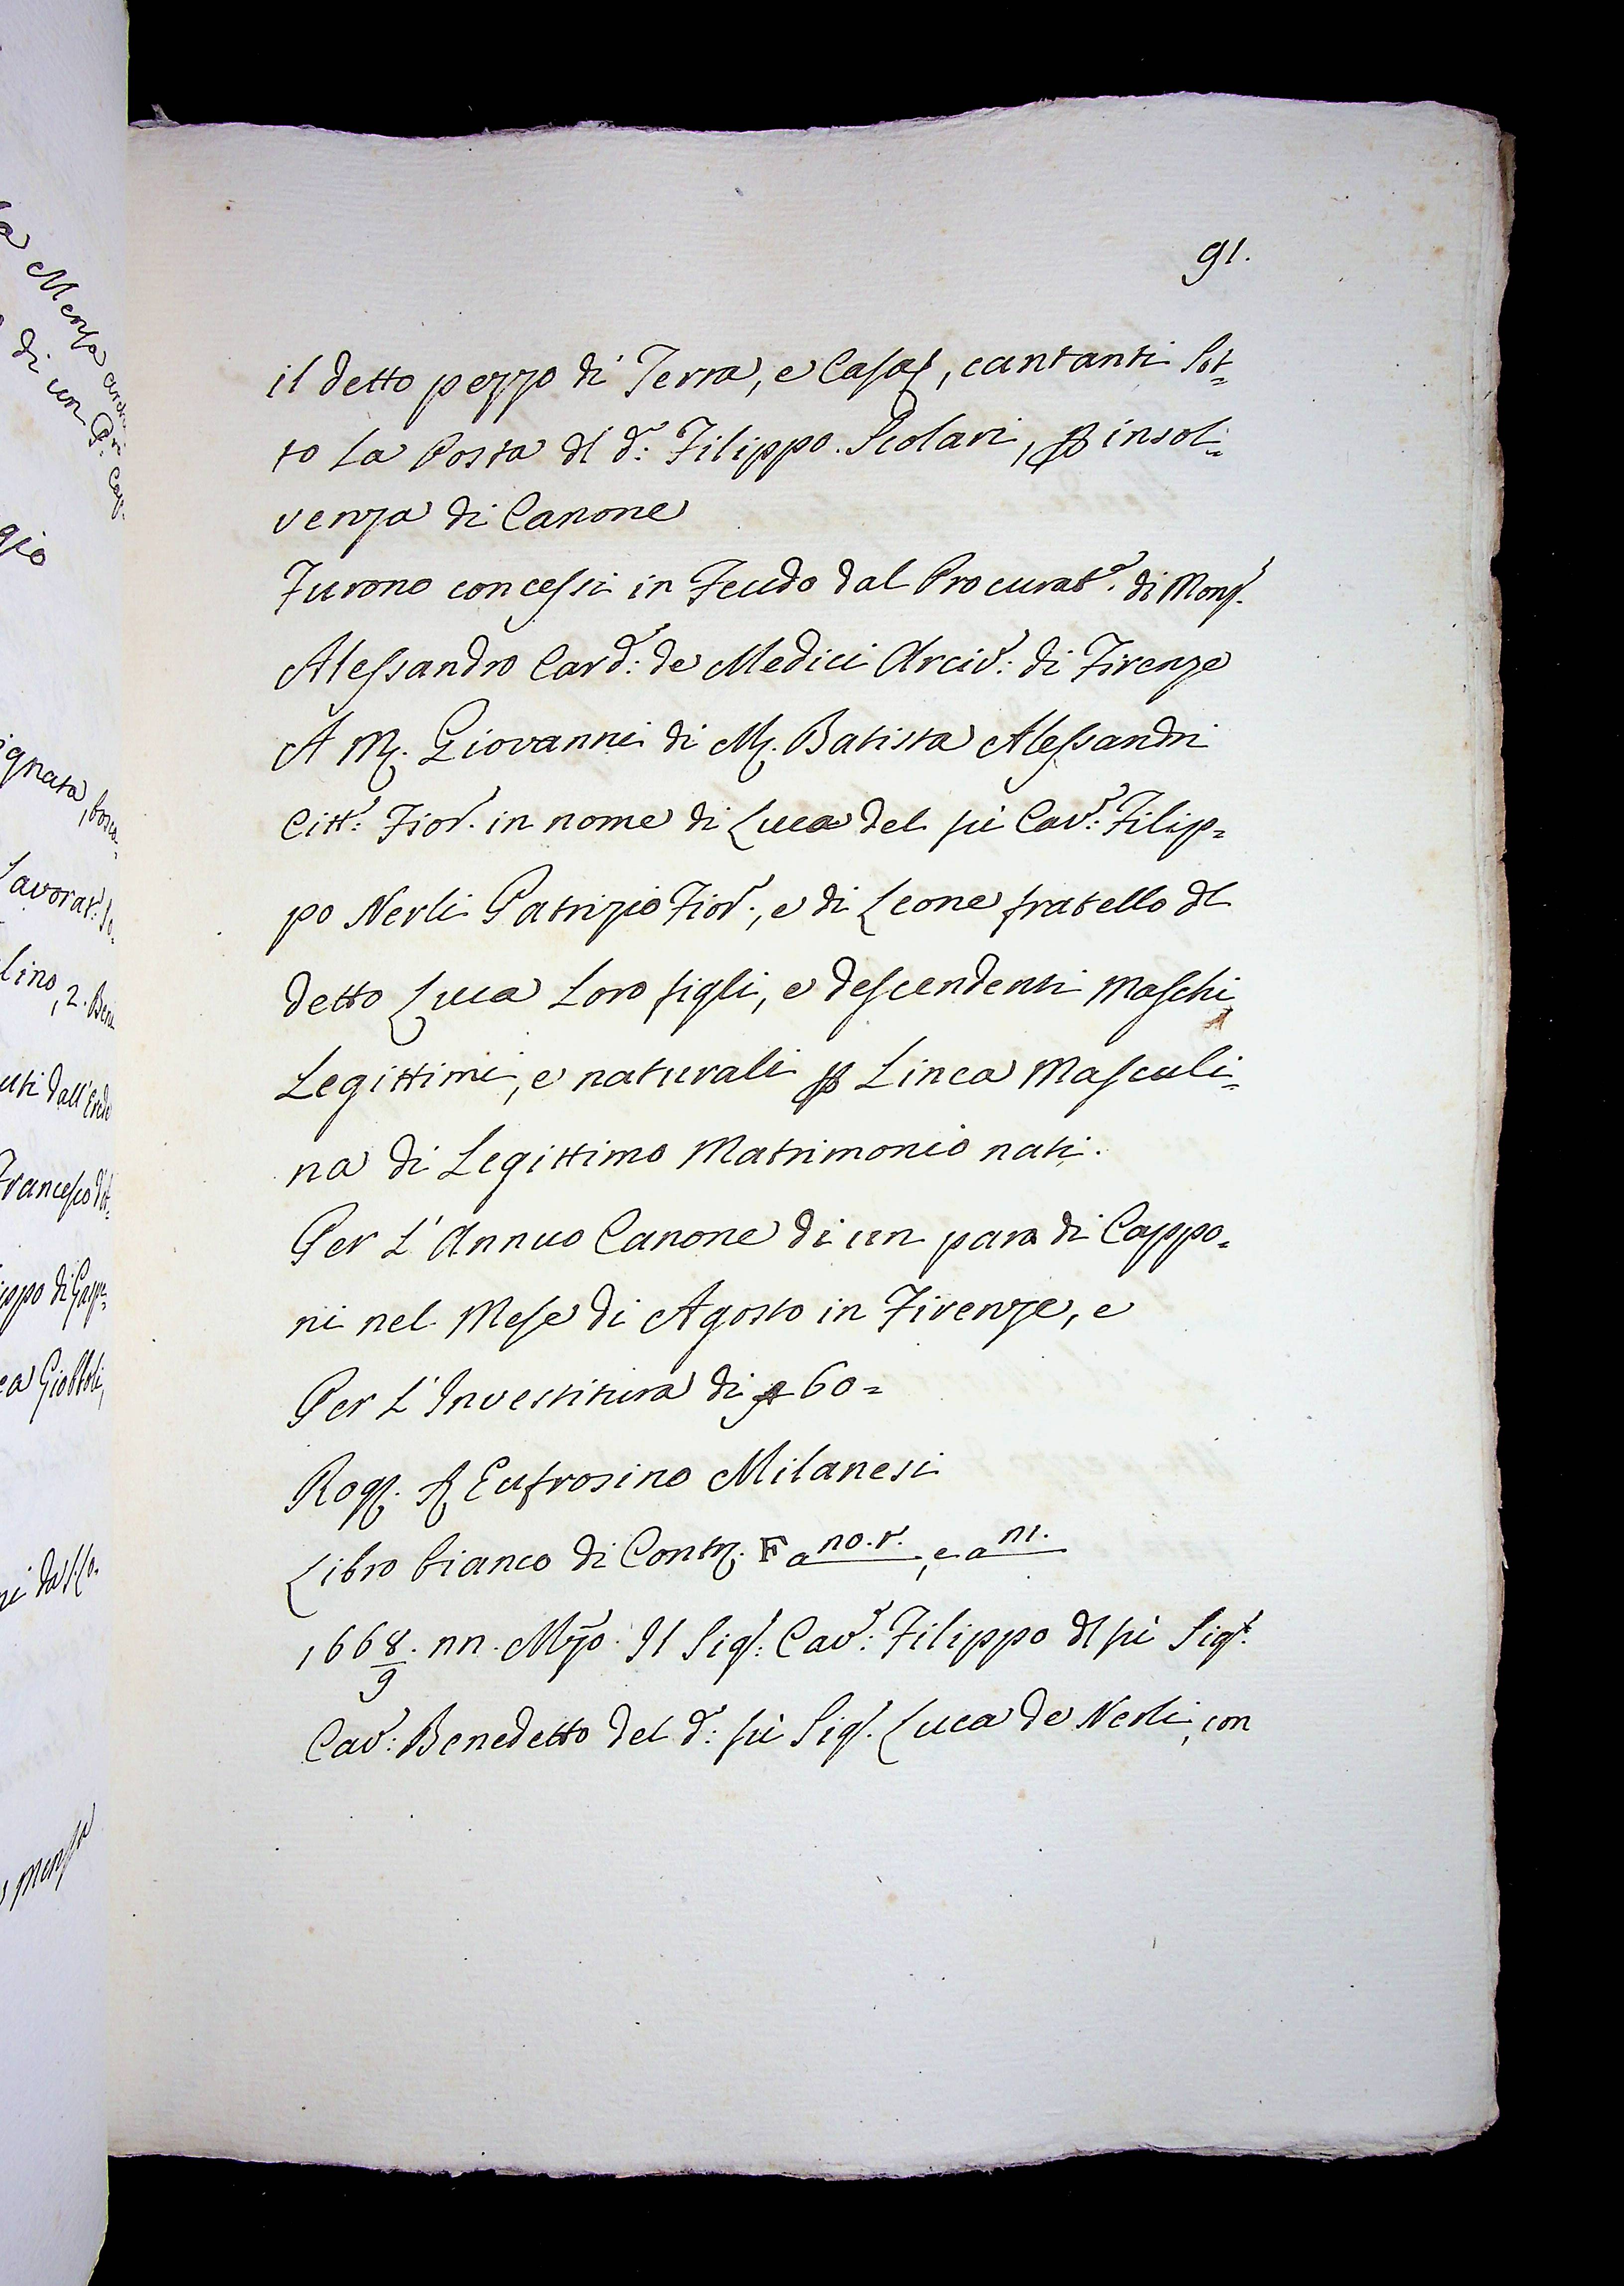 91.
il detto pezzo di Terra, e Casa, cantanti Sot=
to La Posta dl d.º Filippo Scolari, p insol=
venza di Canone
Furono concessi in Feudo dal Procurat.º di Monsʳ.
Alessandro Card: de Medici Arciv: di Firenze
A M. Giovanni di M. Batista Alessandri
Citt: Fior. in nome di Luca del fù Cav: Filip=
po Nerli Patrizio Fior., e di Leone fratello dl
detto Luca Loro figli, e descendenti Maschi
Legittimi, e naturali p Linea Masculi=
na di Legittimo Matrimonio nati.
Per L'Annuo Canone di un paro di Cappo=
ni nel Mese di Agosto in Firenze, e
Per L'Investitura di 60=
Rog. Eufrosino Milanesi
Libro bianco di Contr. F a , e a
1668/9. nn. Mzo. Il Sigʳ: Cav: Filippo dl fù Sigʳ.
Cav: Benedetto del d: fù Sigʳ. Luca de Nerli, con
a Mensa
di un
gio
ignata,
Lavorat:
lino, 2.
uti dall'
Francesco
ippo di
ca
Mensa